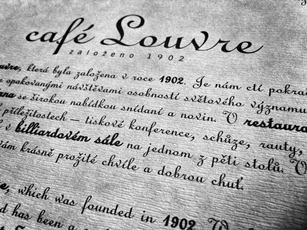 café Louvre
založeno 1902
Louvre, která byla založena v roce 1902. Je nám ctí pokra
opakovanými návštěvami osobností světového významu
se širokou nabídkou snídaní a novin. V restaura
příležitostech – tiskové konference, schůze, rauty,
v billiardovém sále na jednom z pěti stolů. V
vám krásně prožité chvíle a dobrou chuť.
which was founded in 1902.
has been